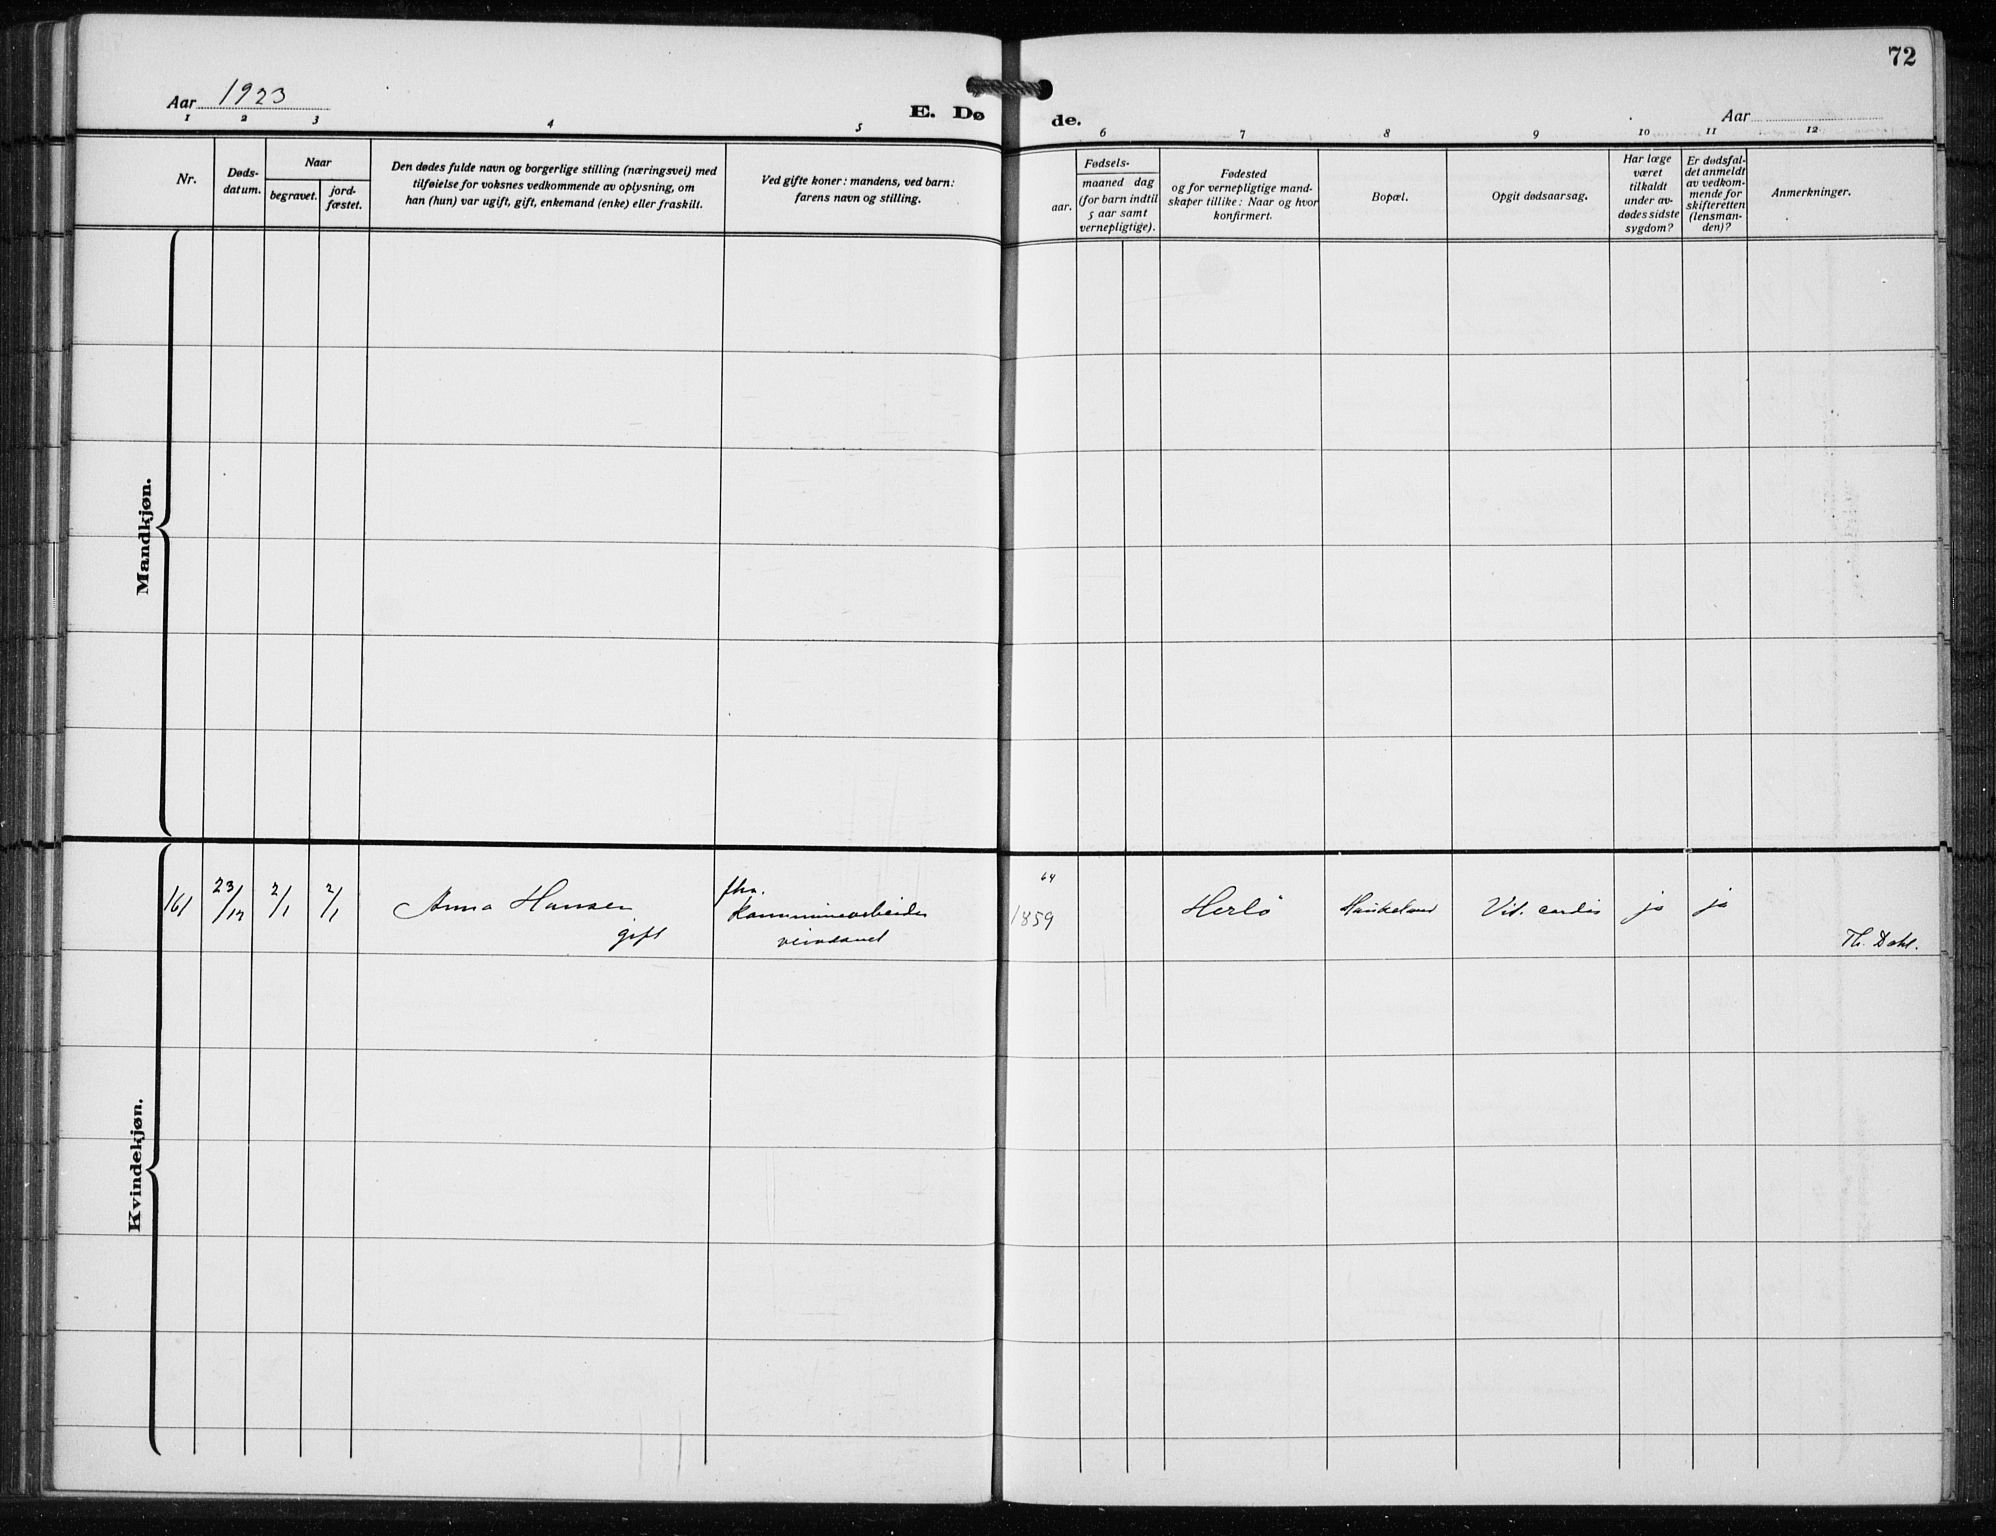 72
Aar 1923
E. Dø de.
Aar
1 2 3 4 5 6 7 8 9 10 11 12
Nr.
Døds-
datum.
Naar
begravet.
jord-
fæstet.
Den dødes fulde navn og borgerlige stilling (næringsvei) med
tilføielse for voksnes vedkommende av oplysning, om
han (hun) var ugift, gift, enkemand (enke) eller fraskilt.
Ved gifte koner: mandens, ved barn:
farens navn og stilling.
Fødsels-
aar.
maaned dag
(for barn indtil
5 aar samt
vernepligtige).
Fødested
og for vernepligtige mand-
skaper tillike: Naar og hvor
konfirmert.
Bopæl.
Opgit dødsaarsag.
Har læge
været
tilkaldt
under av-
dødes sidste
sygdom?
Er dødsfal-
det anmeldt
av vedkom-
mende for
skifteretten
(lensman-
den)?
Anmerkninger.
Mandkjøn.
Kvindekjøn.
161 23/12 2/1 2/1 Anna Hansen
gift
fhv.
Kommunearbeider
64
1859 Herlö Haukeland Vit. cordis ja ja
Th. Dahl.